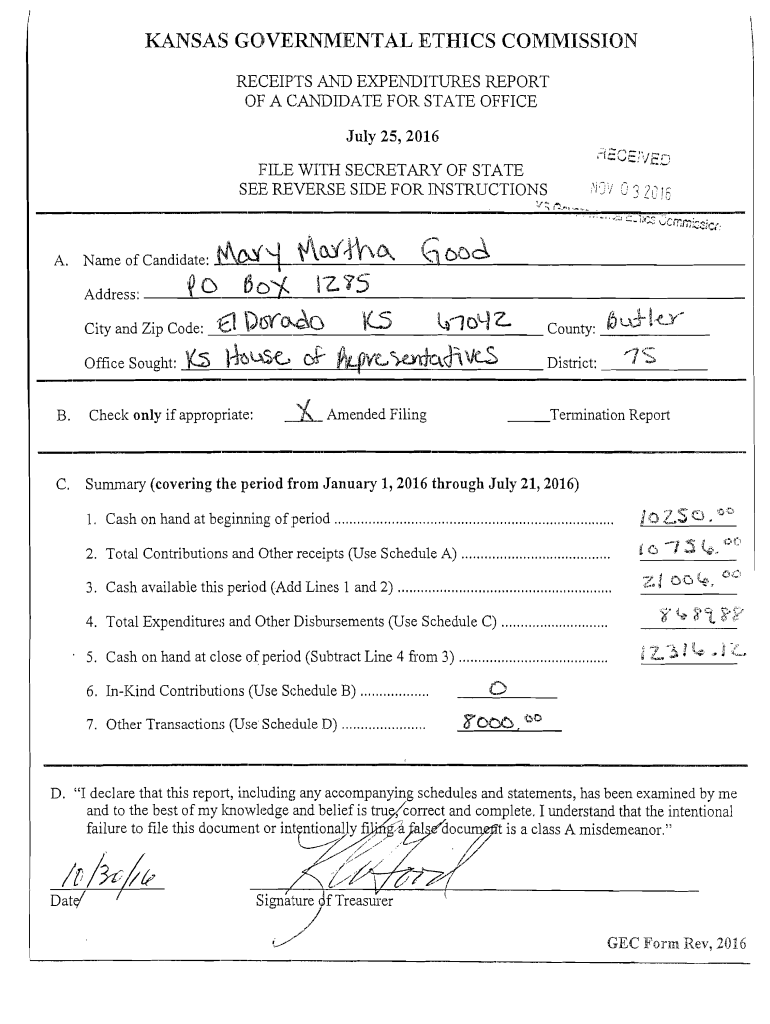 KANSAS GOVERNMENTAL ETHICS COMMISSION
RECEIPTS AND EXPENDITURES REPORT
OF A CANDIDATE FOR STATE OFFICE
July 25, 2016
FILE WITH SECRETARY OF STATE
SEE REVERSE SIDE FOR INSTRUCTIONS
RECEIVED
NOV 03 2016
Ethics Commission
A. Name of Candidate: Mary Martha Good
Address: PO Box 1285
City and Zip Code: El Dorado KS 67042 County: Butler
Office Sought: KS House of Representatives District: 75
B. Check only if appropriate: X Amended Filing _____Termination Report
C. Summary (covering the period from January 1, 2016 through July 21, 2016)
1. Cash on hand at beginning of period .......... 10250.00
2. Total Contributions and Other receipts (Use Schedule A) .......... 10756.00
3. Cash available this period (Add Lines 1 and 2) .......... 21006.00
4. Total Expenditures and Other Disbursements (Use Schedule C) .......... 868988
5. Cash on hand at close of period (Subtract Line 4 from 3) .......... 12316.12
6. In-Kind Contributions (Use Schedule B) .......... 0
7. Other Transactions (Use Schedule D) .......... 8000.00
D. “I declare that this report, including any accompanying schedules and statements, has been examined by me
and to the best of my knowledge and belief is true, correct and complete. I understand that the intentional
failure to file this document or intentionally filing a false document is a class A misdemeanor.”
10/30/16
Date Signature of Treasurer
GEC Form Rev, 2016